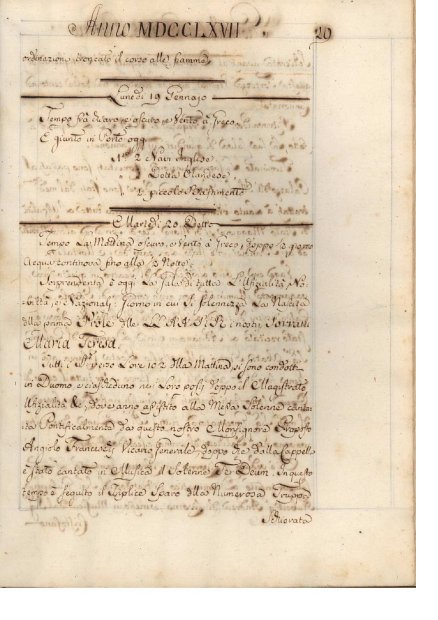 Anno MDCCLXVII. 20
ordinazione troncato il corso alle fiamme
Lunedì 19 Gennajo
Tempo frà chiaro, e oscuro, e Vento à Greco
E giunto in Porto oggi
N° 2 Navi Inglese
1 Detta Olandese
1 piccolo Bastimento
Martedì 20 Detto
Tempo La Mattina oscuro, e Vento à Greco, e doppo 2 giorno
Acqua continova fino alle 2 Notte
Sorprendente è oggi La Gala di tutta L'Ufizialità No-
biltà, e Nazionali, giorno in cui si solennizza La Nascita
della prima Prole delle LL. AA. RR. in
Maria Teresa.
Tutti verso L'ore 10 2 della Mattina si sono condotti
in Duomo, e ciascheduno nei Loro posti doppo il Magistrato
Ufizialità &c. dove anno assistito alla Messa Solenne canta-
ta Pontificalmente da questo nostro Monsignore Proposto
Angiolo Franceschi Vicario Generale, e doppo che dalla Cappella
è stato cantato in Musica il Solenne Te Deum. In questo
tempo è seguito il triplice Sparo della Numerosa Truppa